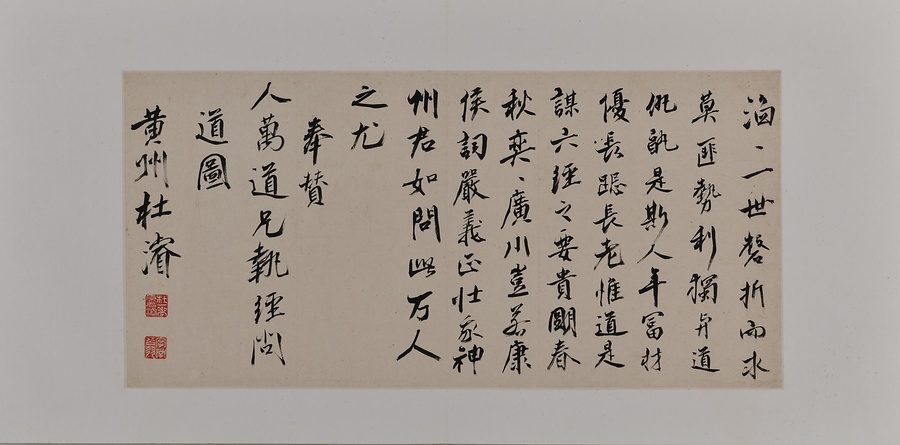 滔、一世磬折而求
莫匪勢利獨与道
仇孰是斯人年富材
優長跽長老惟道是
謀六經之要貴春
秋奕、廣川豈若康
侯詞嚴義正壯哉神
州君如問此万人
之尤
奉贊
人萬道兄執經問
道圖
黃州杜濬